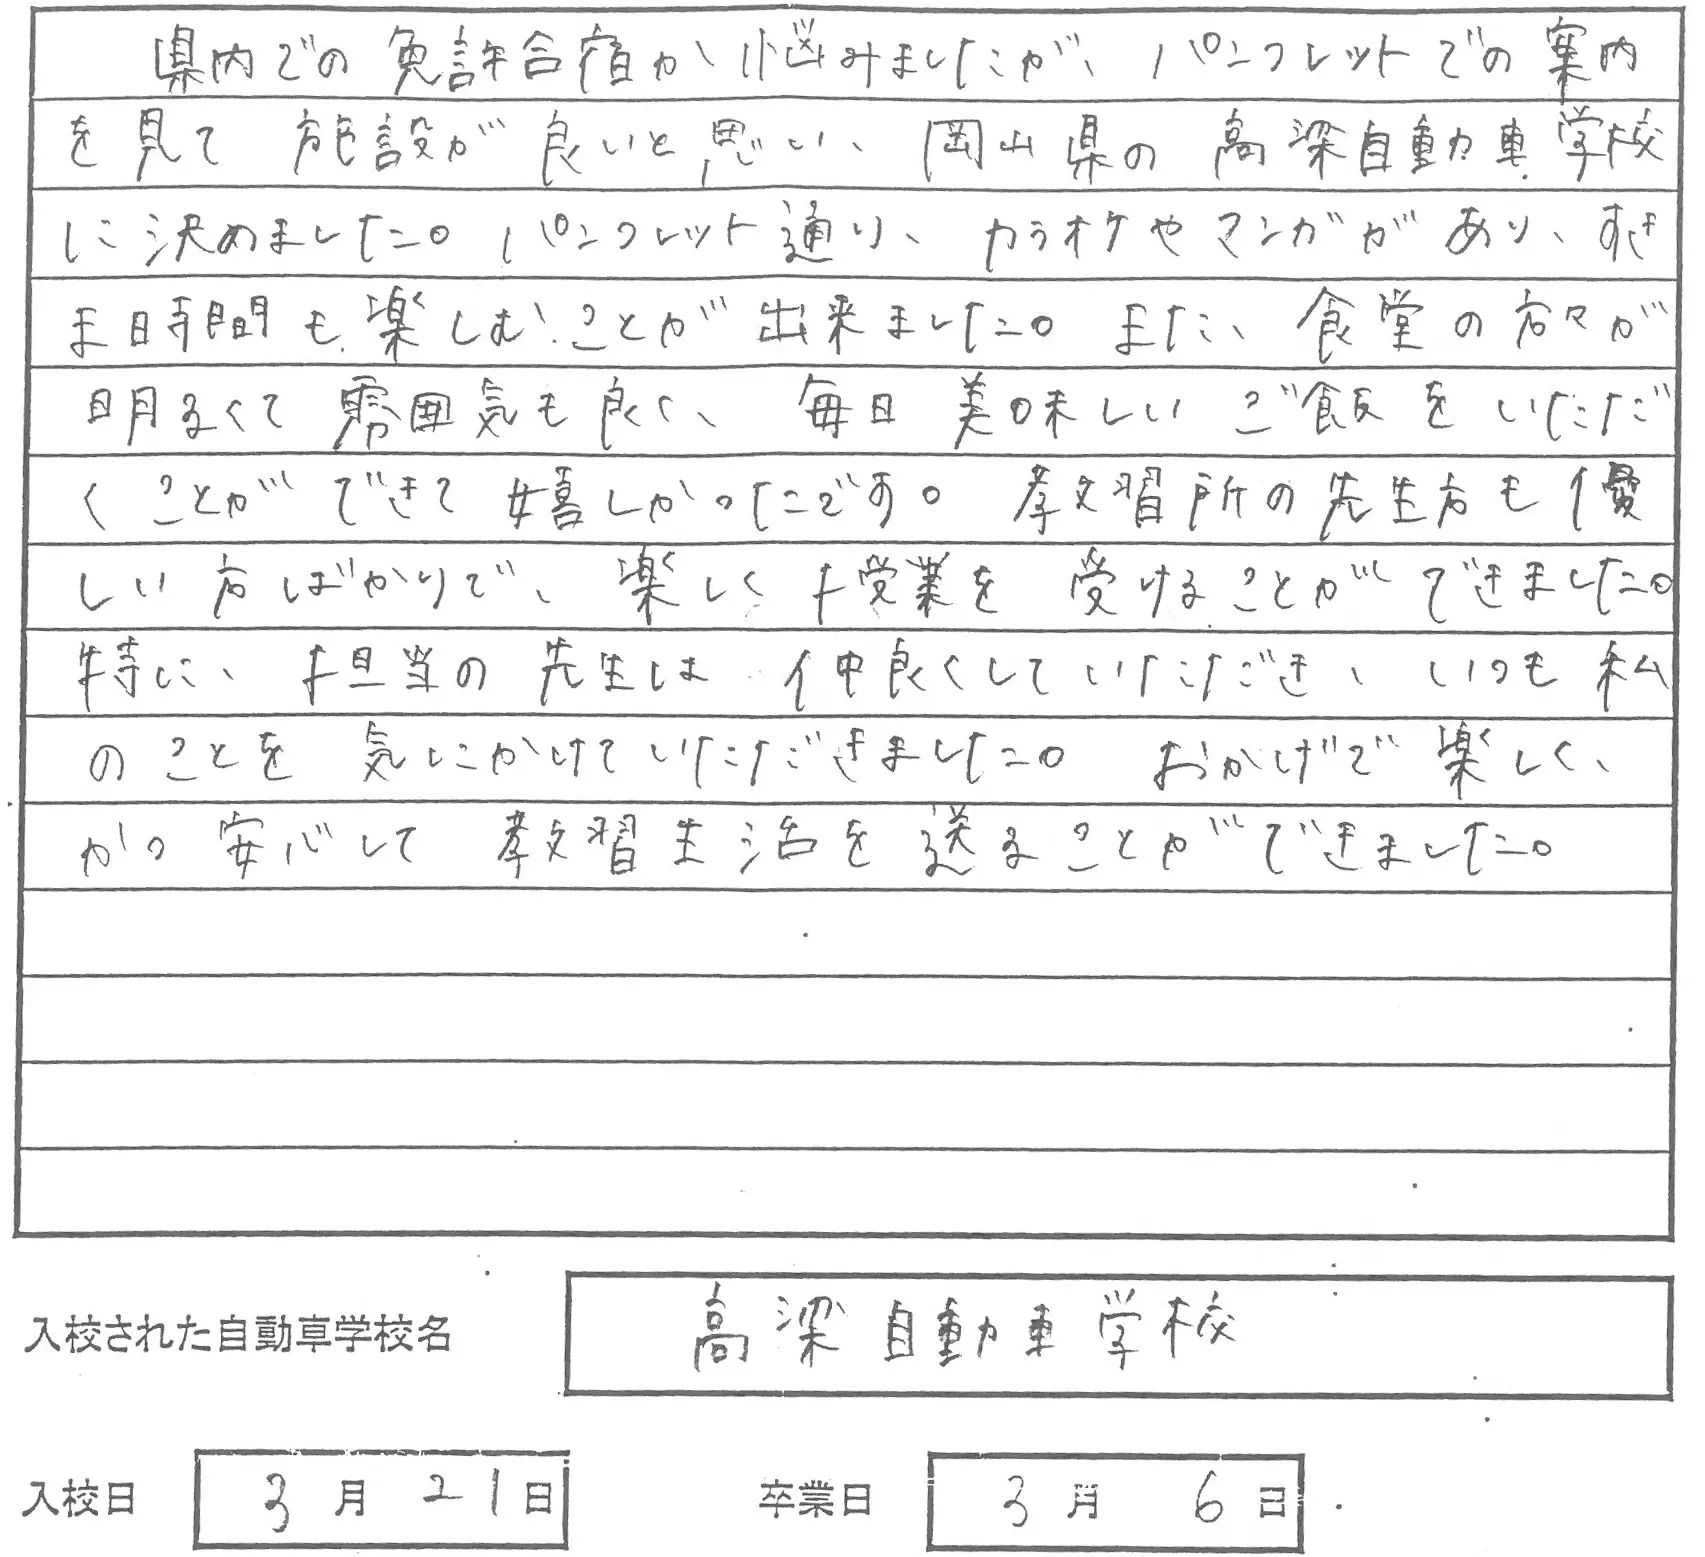 県内での免許合宿か悩みましたが、パンフレットでの案内
を見て 施設が良いと思い、岡山県の高梁自動車学校
に決めました。パンフレット通り、カラオケやマンガがあり、すき
ま時間も楽しむことが出来ました。また、食堂の方々が
明るくて雰囲気も良く、毎日美味しいご飯をいただ
くことができて嬉しかったです。教習所の先生方も優
しい方ばかりで、楽しく授業を受けることができました。
特に、担当の先生は仲良くしていただき、いつも私
のことを気にかけていただきました。おかげで楽しく、
かつ安心して教習生活を送ることができました。
入校された自動車学校名 高梁自動車学校
入校日 3月21日 卒業日 3月6日